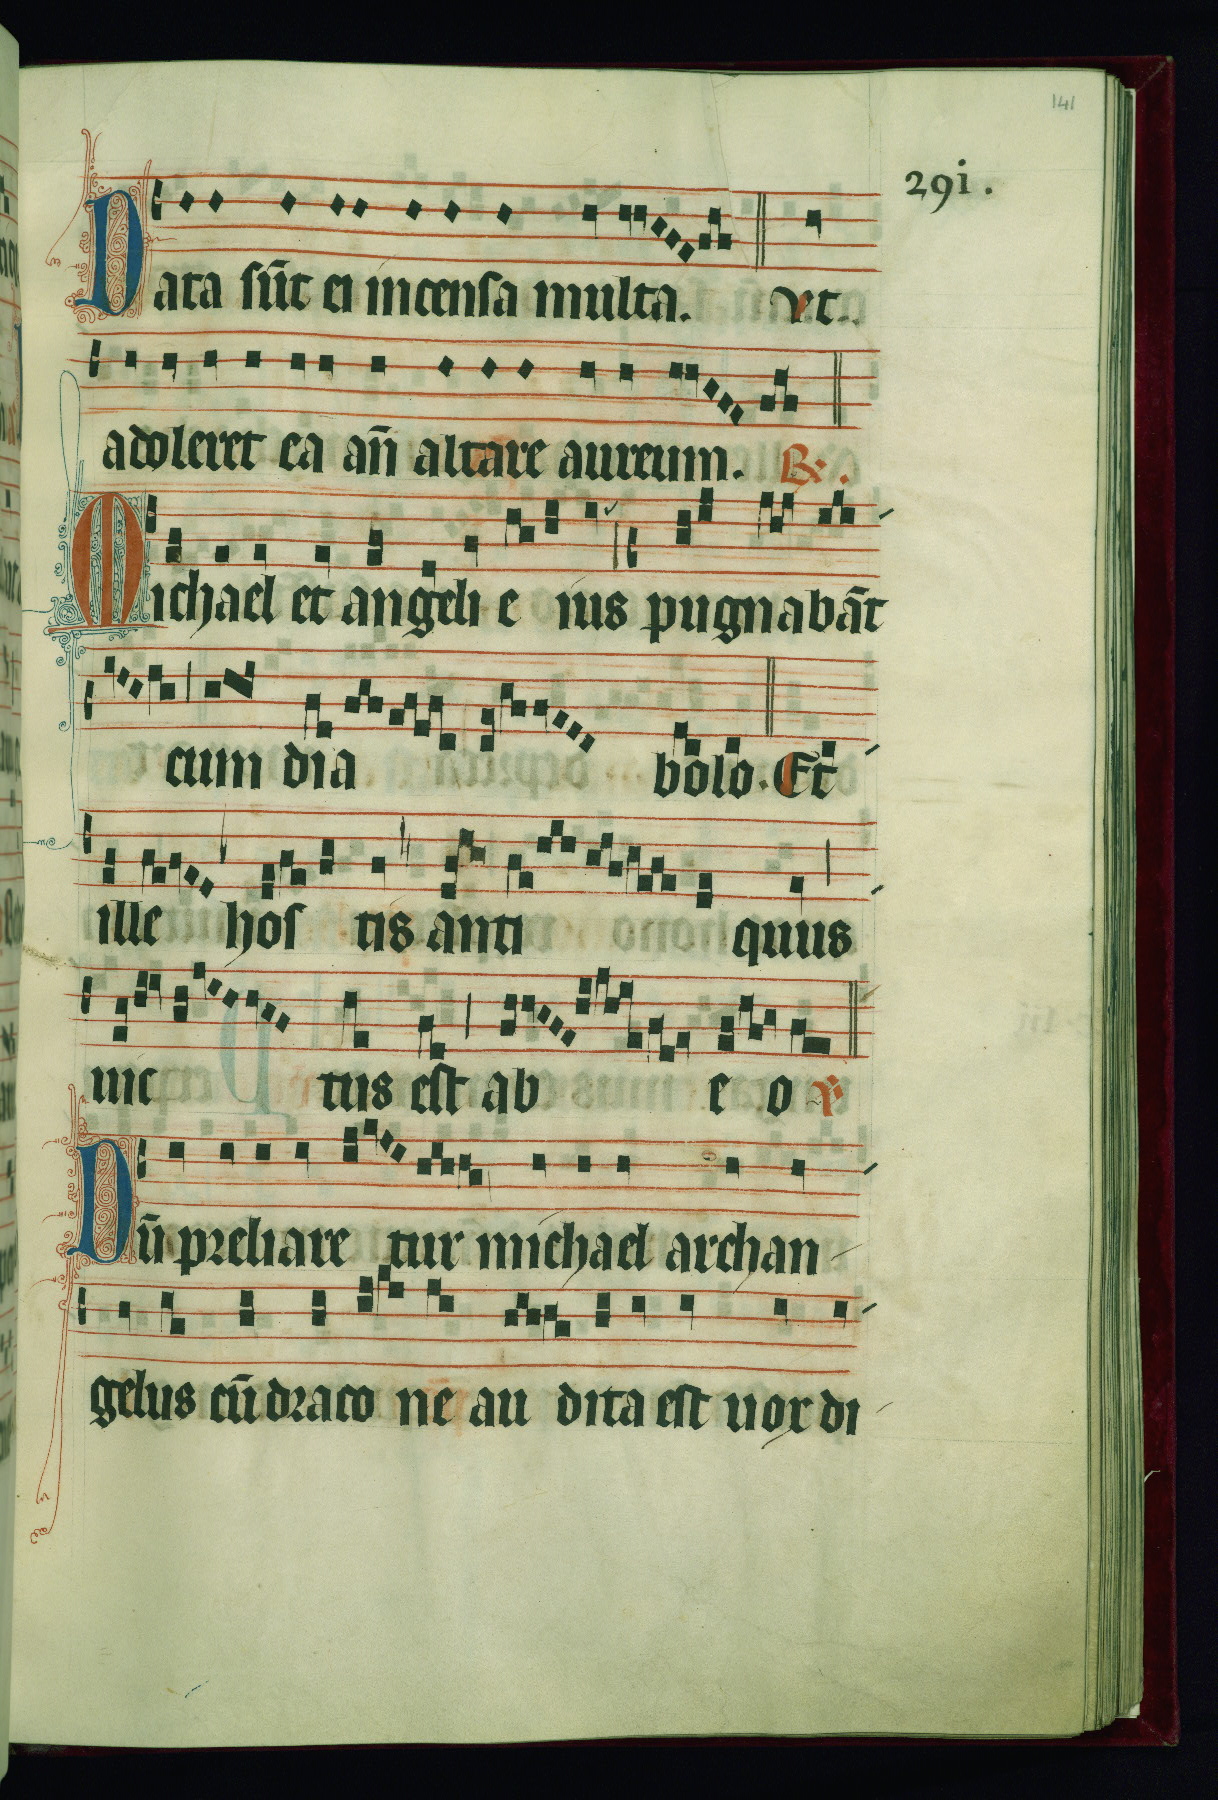 141
291.
Data sūt ei incensa multa. Vt
adoleret ea an̄ altare aureum. R.
Michael et angeli e ius pugnabāt
cum dia bolo. Et
ille hos tis anti quus
uic tus est ab e o V
Dū preliare tur michael archan
gelus cū draco ne au dita est uox di